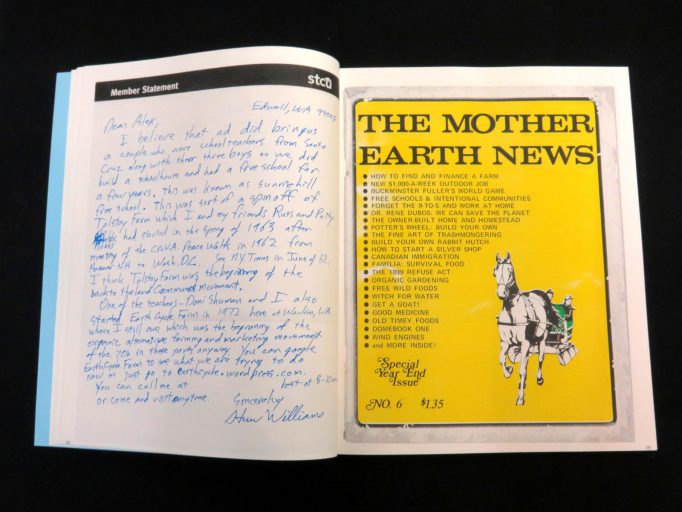 Member Statement
stcu
Edwall, WA 99008
Dear Alex,
I believe that ad did bring us
a couple who were school teachers from Santa
Cruz along with their three boys so we did
build a schoolhouse and had a free school for
a few years. This was known as sunrise hill
free school. This was sort of a spinoff of
Tolstoy Farm which I and my friends Russ and Patty
had started in the Spring of 1963 after
meeting at the CNVA Peace Walk in 1962 from
N.H. to Wash. D.C. See NY Times in June of 62.
I think Tolstoy Farm was the beginning of the
back to the land Commune movement.
One of the teachers - Doni Shuman and I also
started Earth Cycle Farm in 1972 here at Waukon, WA.
where I still am, which was the beginning of the
organic alternative farming and marketing movement
of the 70s in these parts anyway. You can google
Earth Cycle Farm to see what we are trying to do
now or just go to earthcycle.wordpress.com.
You can call me at best at 8-10
or come and visit anytime.
Sincerely
Williams
THE MOTHER
EARTH NEWS
HOW TO FIND AND FINANCE A FARM
NEW $1,000-A-WEEK OUTDOOR JOB
BUCKMINSTER FULLER'S WORLD GAME
FREE SCHOOLS & INTENTIONAL COMMUNITIES
FORGET THE 9-TO-5 AND WORK AT HOME
DR. RENE DUBOS: WE CAN SAVE THE PLANET
THE OWNER-BUILT HOME AND HOMESTEAD
POTTER'S WHEEL: BUILD YOUR OWN
THE FINE ART OF TRASHMONGERING
BUILD YOUR OWN RABBIT HUTCH
HOW TO START A SILVER SHOP
CANADIAN IMMIGRATION
FAMILIA: SURVIVAL FOOD
THE 1899 REFUSE ACT
ORGANIC GARDENING
FREE WILD FOODS
WITCH FOR WATER
GET A GOAT!
GOOD MEDICINE
OLD TIMEY FOODS
DOMEBOOK ONE
WIND ENGINES
and MORE INSIDE!
Special
Year End
Issue
NO. 6 $1.35